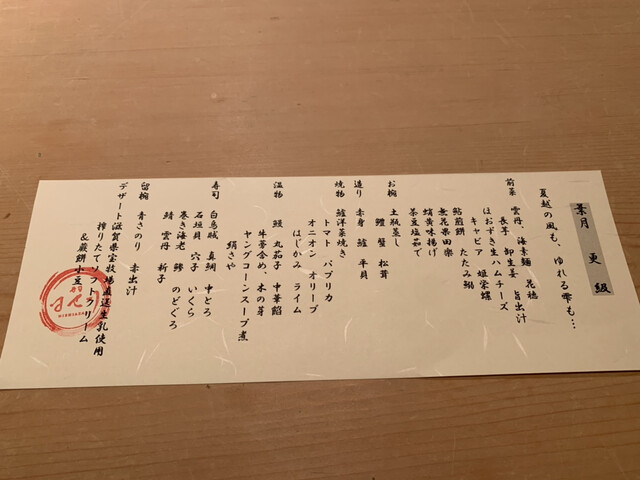 葉月 更級
夏越の風も、ゆれる雫も…
前菜 雲丹、海素麺 花穂
長芋 卸生姜 旨出汁
ほおずき生ハムチーズ
キャビア 姫栄螺
鮎煎餅 たたみ鰯
無花果田楽
蛸黄味揚げ
茶豆塩茹で
お椀 土瓶蒸し
鱧 蟹 松茸
造り 赤身 鱸 平貝
焼物 鱸洋菜焼き
トマト パプリカ
オニオン オリーブ
はじかみ ライム
温物 鰻 丸茄子 中華餡
牛蒡含め、木の芽
ヤングコーンスープ煮
絹さや
寿司 白烏賊 真鯛 中とろ
石垣貝 穴子 いくら
巻き海老 鯵 のどぐろ
鯖 雲丹 新子
留椀 青さのり 赤出汁
デザート 滋賀県宝牧場直送生乳使用
搾りたてソフトクリーム
&煎餅小豆